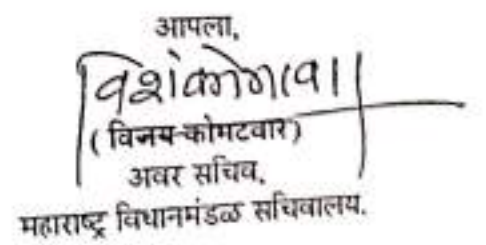 आपला,
( विजय कोमटवार )
अवर सचिव,
महाराष्ट्र विधानमंडळ सचिवालय.